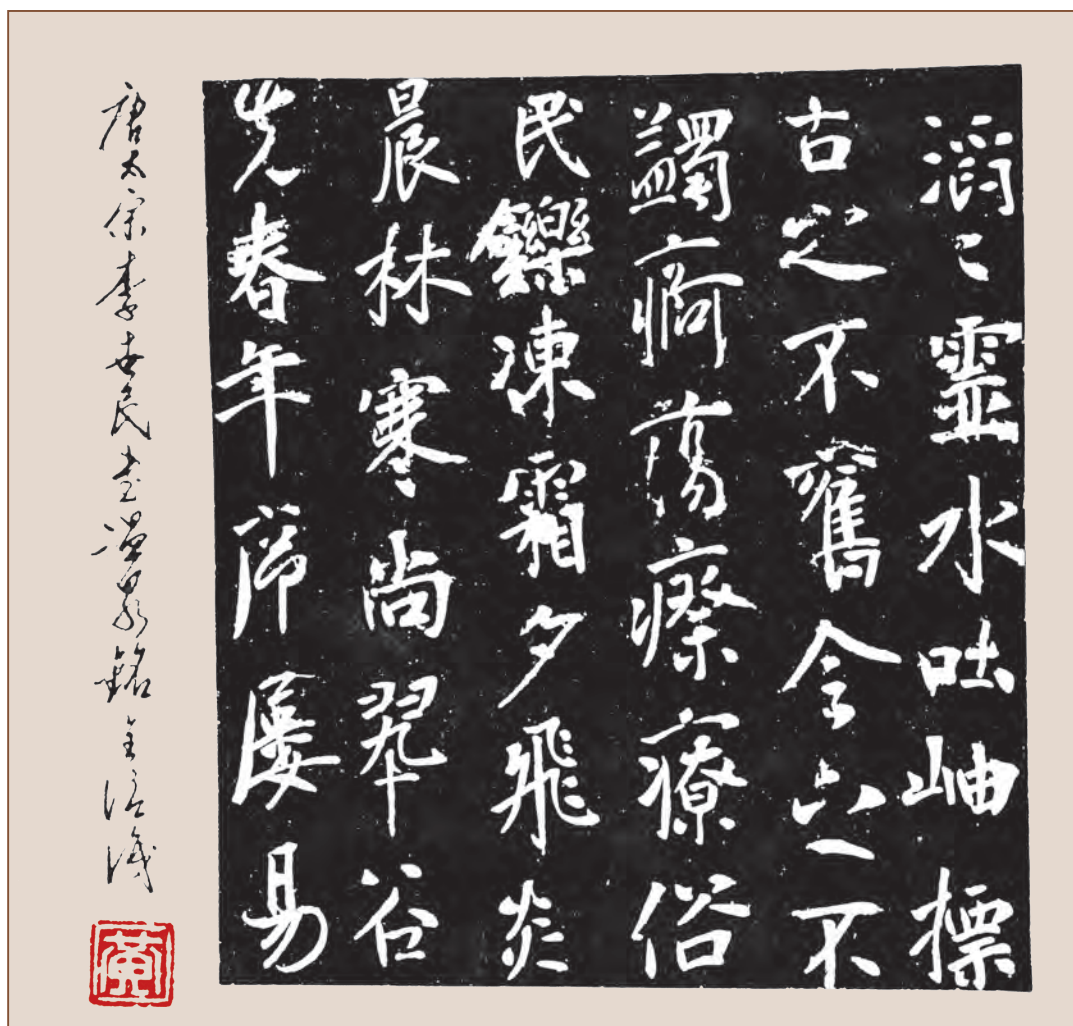 滔〻靈水吐岫標
古之不舊今之不
蠲痾蕩瘵療俗
民鑠凍霜夕飛炎
晨林寒尚翠谷
先春年序屢易
唐太宗李世民書溫泉銘